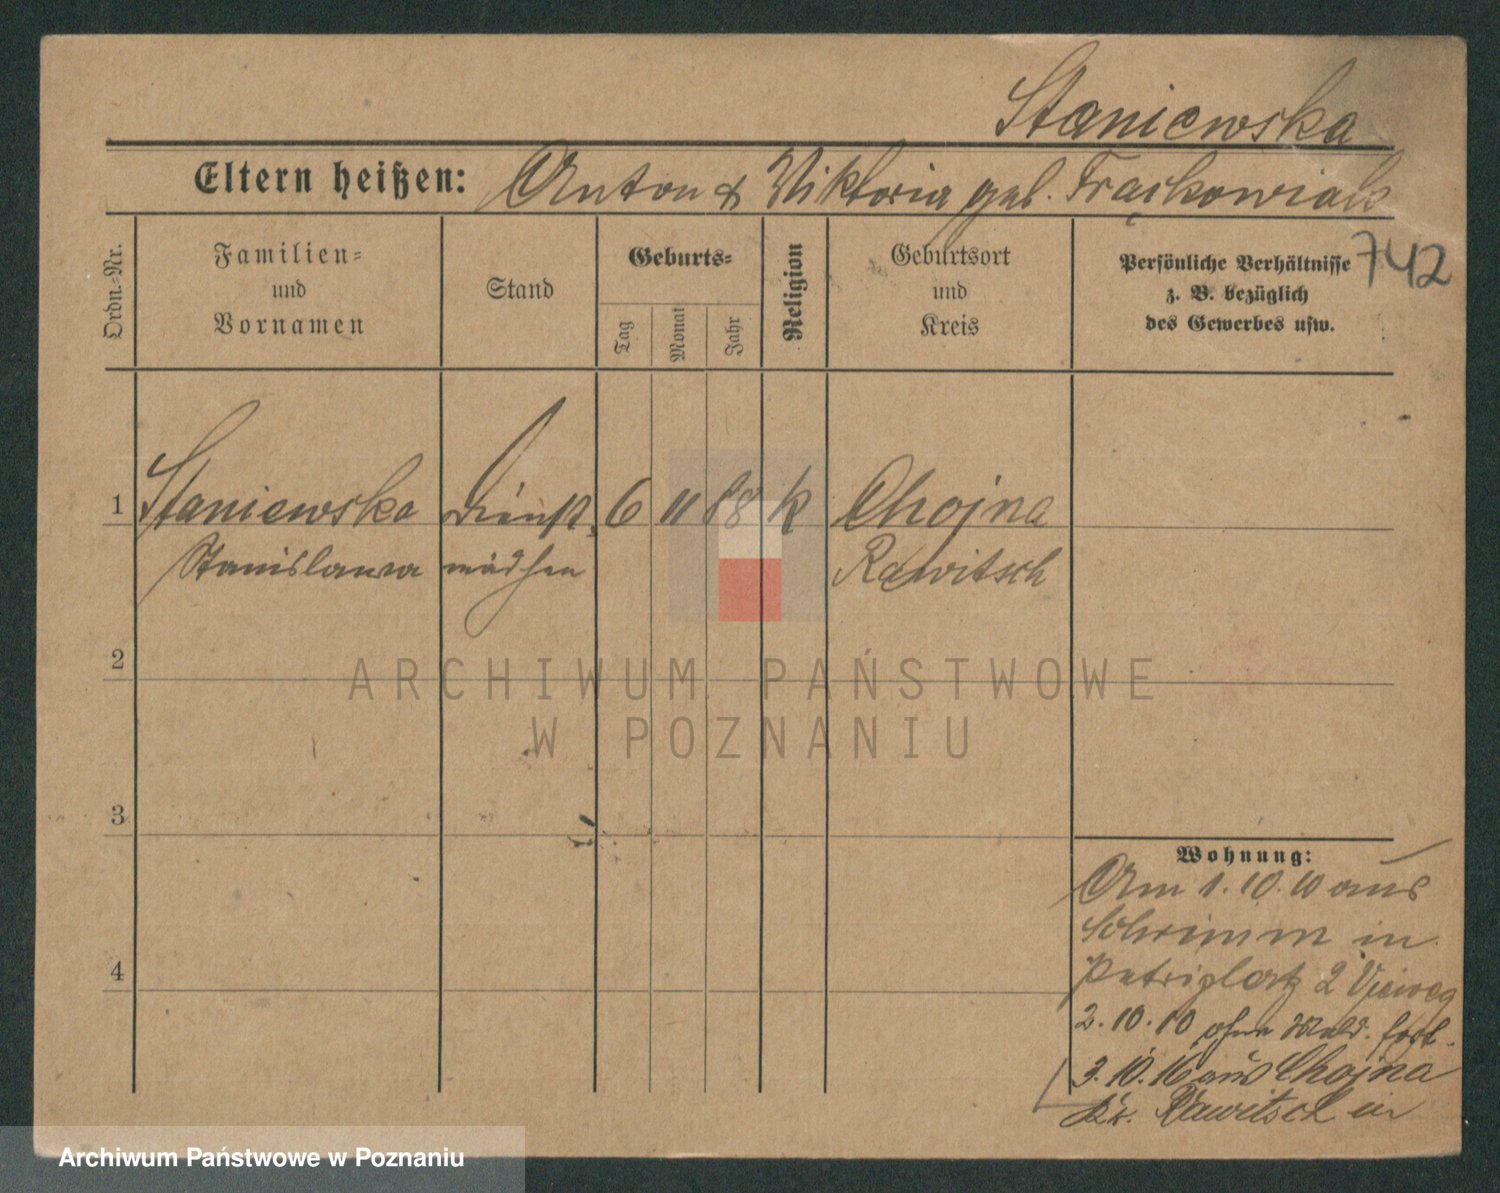 Staniewska
Eltern heißen: Anton & Viktoria geb. Frąckowiak
742
Ordn.-Nr.
Familien-
und
Vornamen
Stand
Geburts-
Tag
Monat
Jahr
Religion
Geburtsort
und
Kreis
Persönliche Verhältnisse
z. B. bezüglich
des Gewerbes usw.
1 Staniewska Dienst 6 11 88 k Chojna
Stanislawa mädchen Rawitsch
2
3
4
Wohnung:
Am 1.10.10 aus
Schrimm in
Petriplatz 2
2.10.10 ohne Meld. fort.
3.10.16 aus Chojna
Kr. Rawitsch in
ARCHIWUM PAŃSTWOWE
W POZNANIU
Archiwum Państwowe w Poznaniu